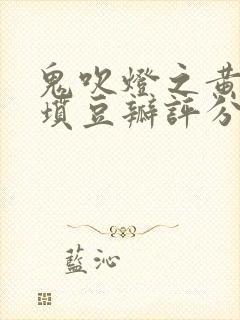 鬼吹燈之黃
墳豆瓣評分
藍沁